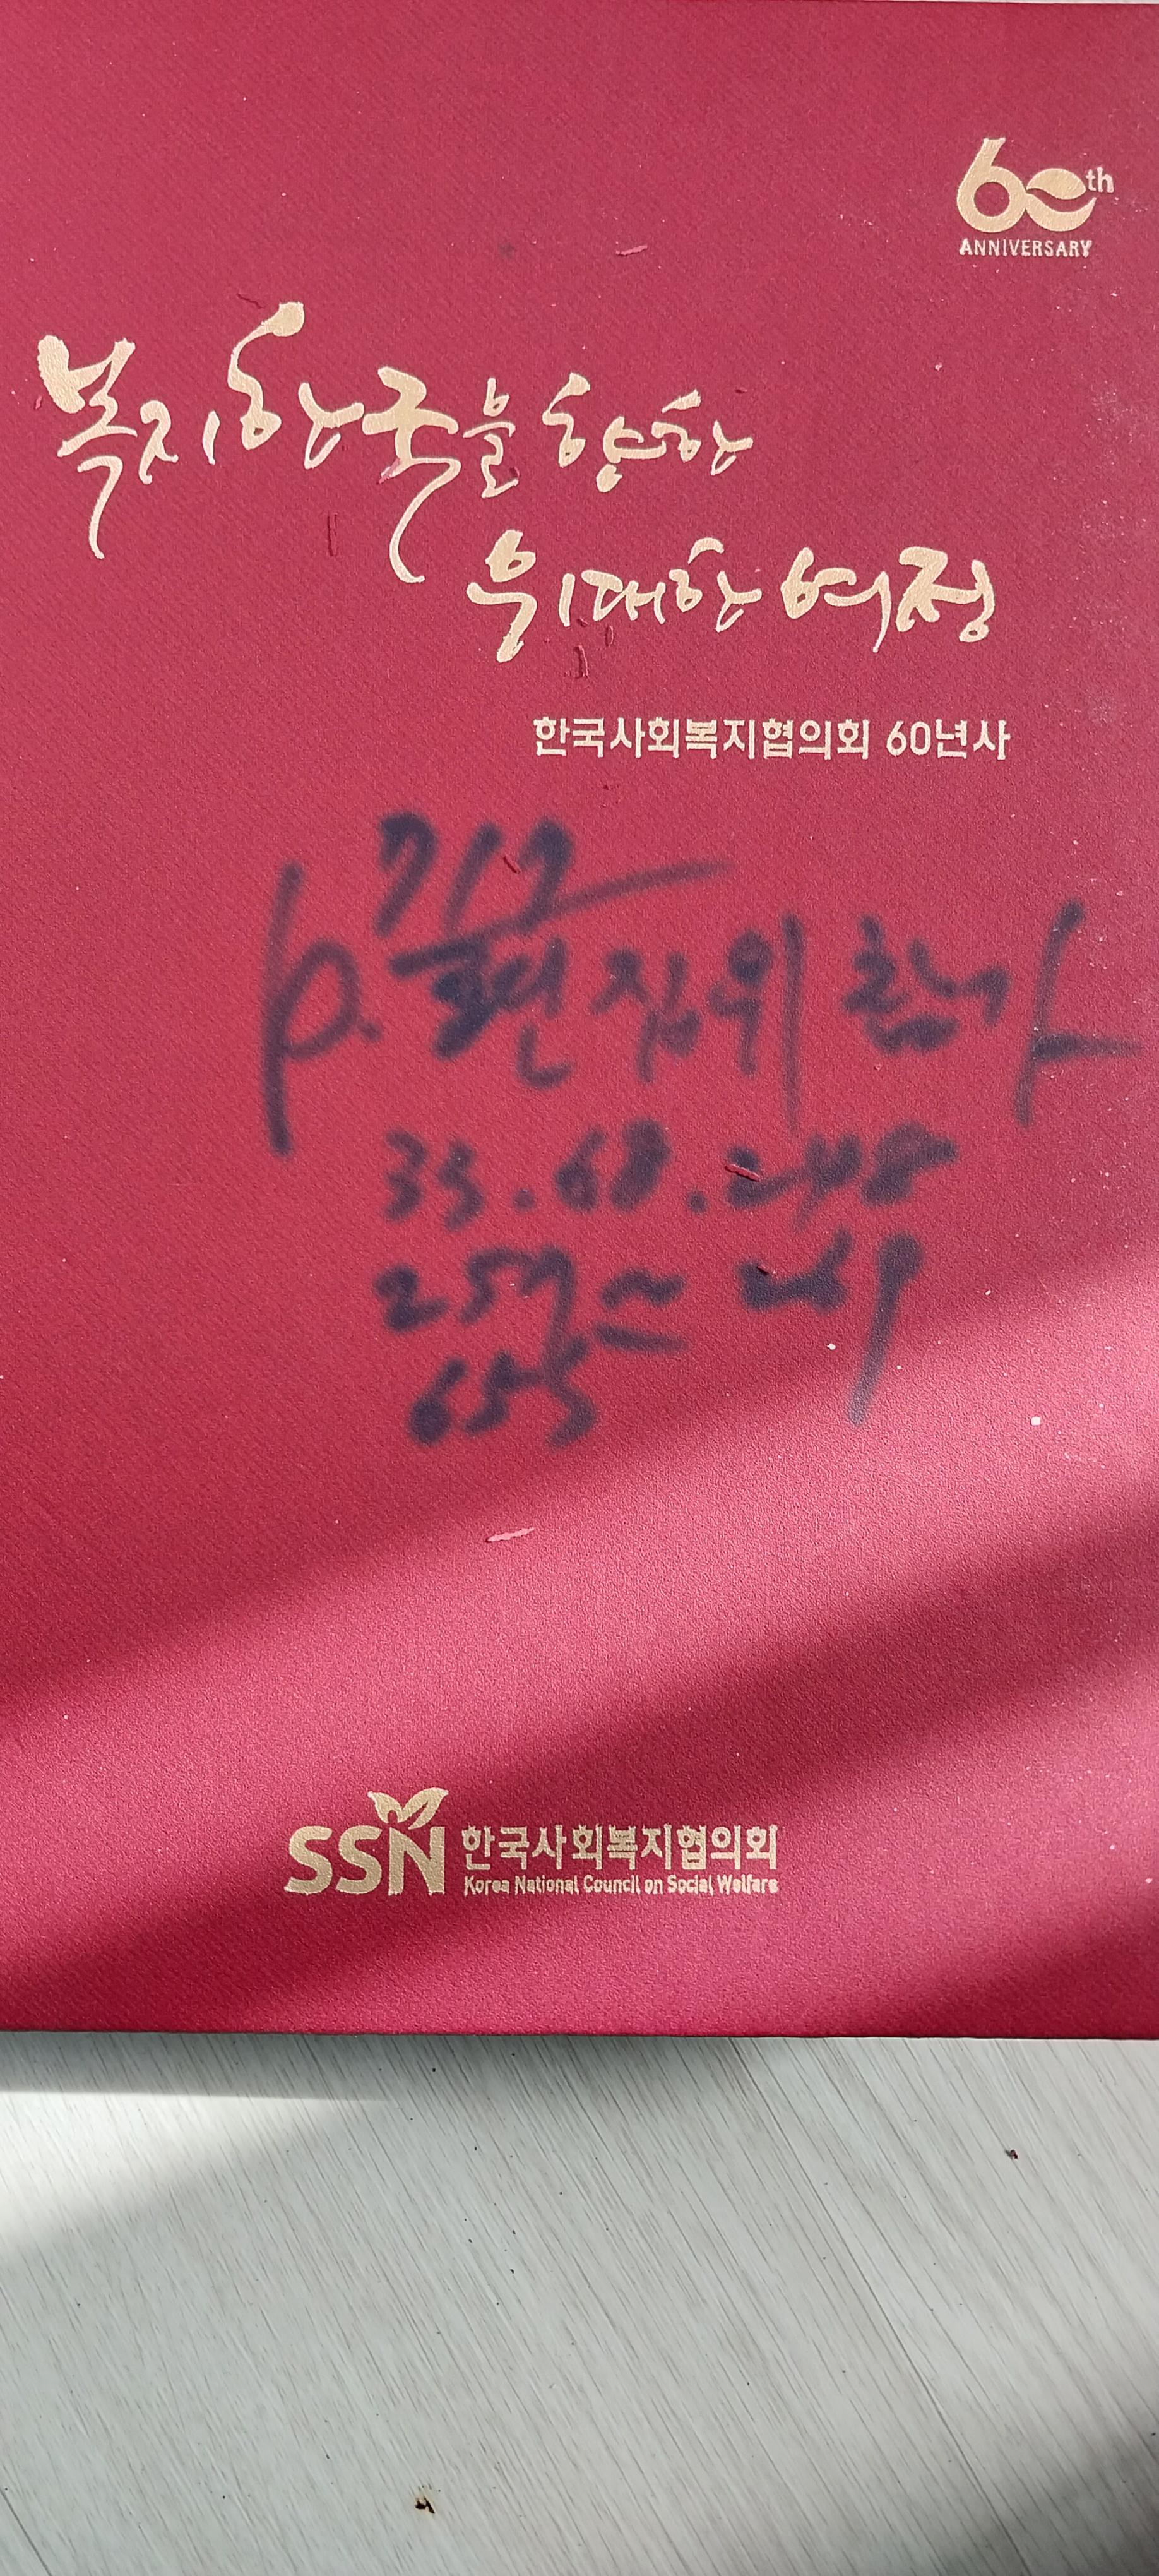 60th
ANNIVERSARY
복지한국을 향한
위대한 여정
한국사회복지협의회 60년사
712
p. 편집위 참가
33.68.248
257~269
655
SSN 한국사회복지협의회
Korea National Council on Social Welfare